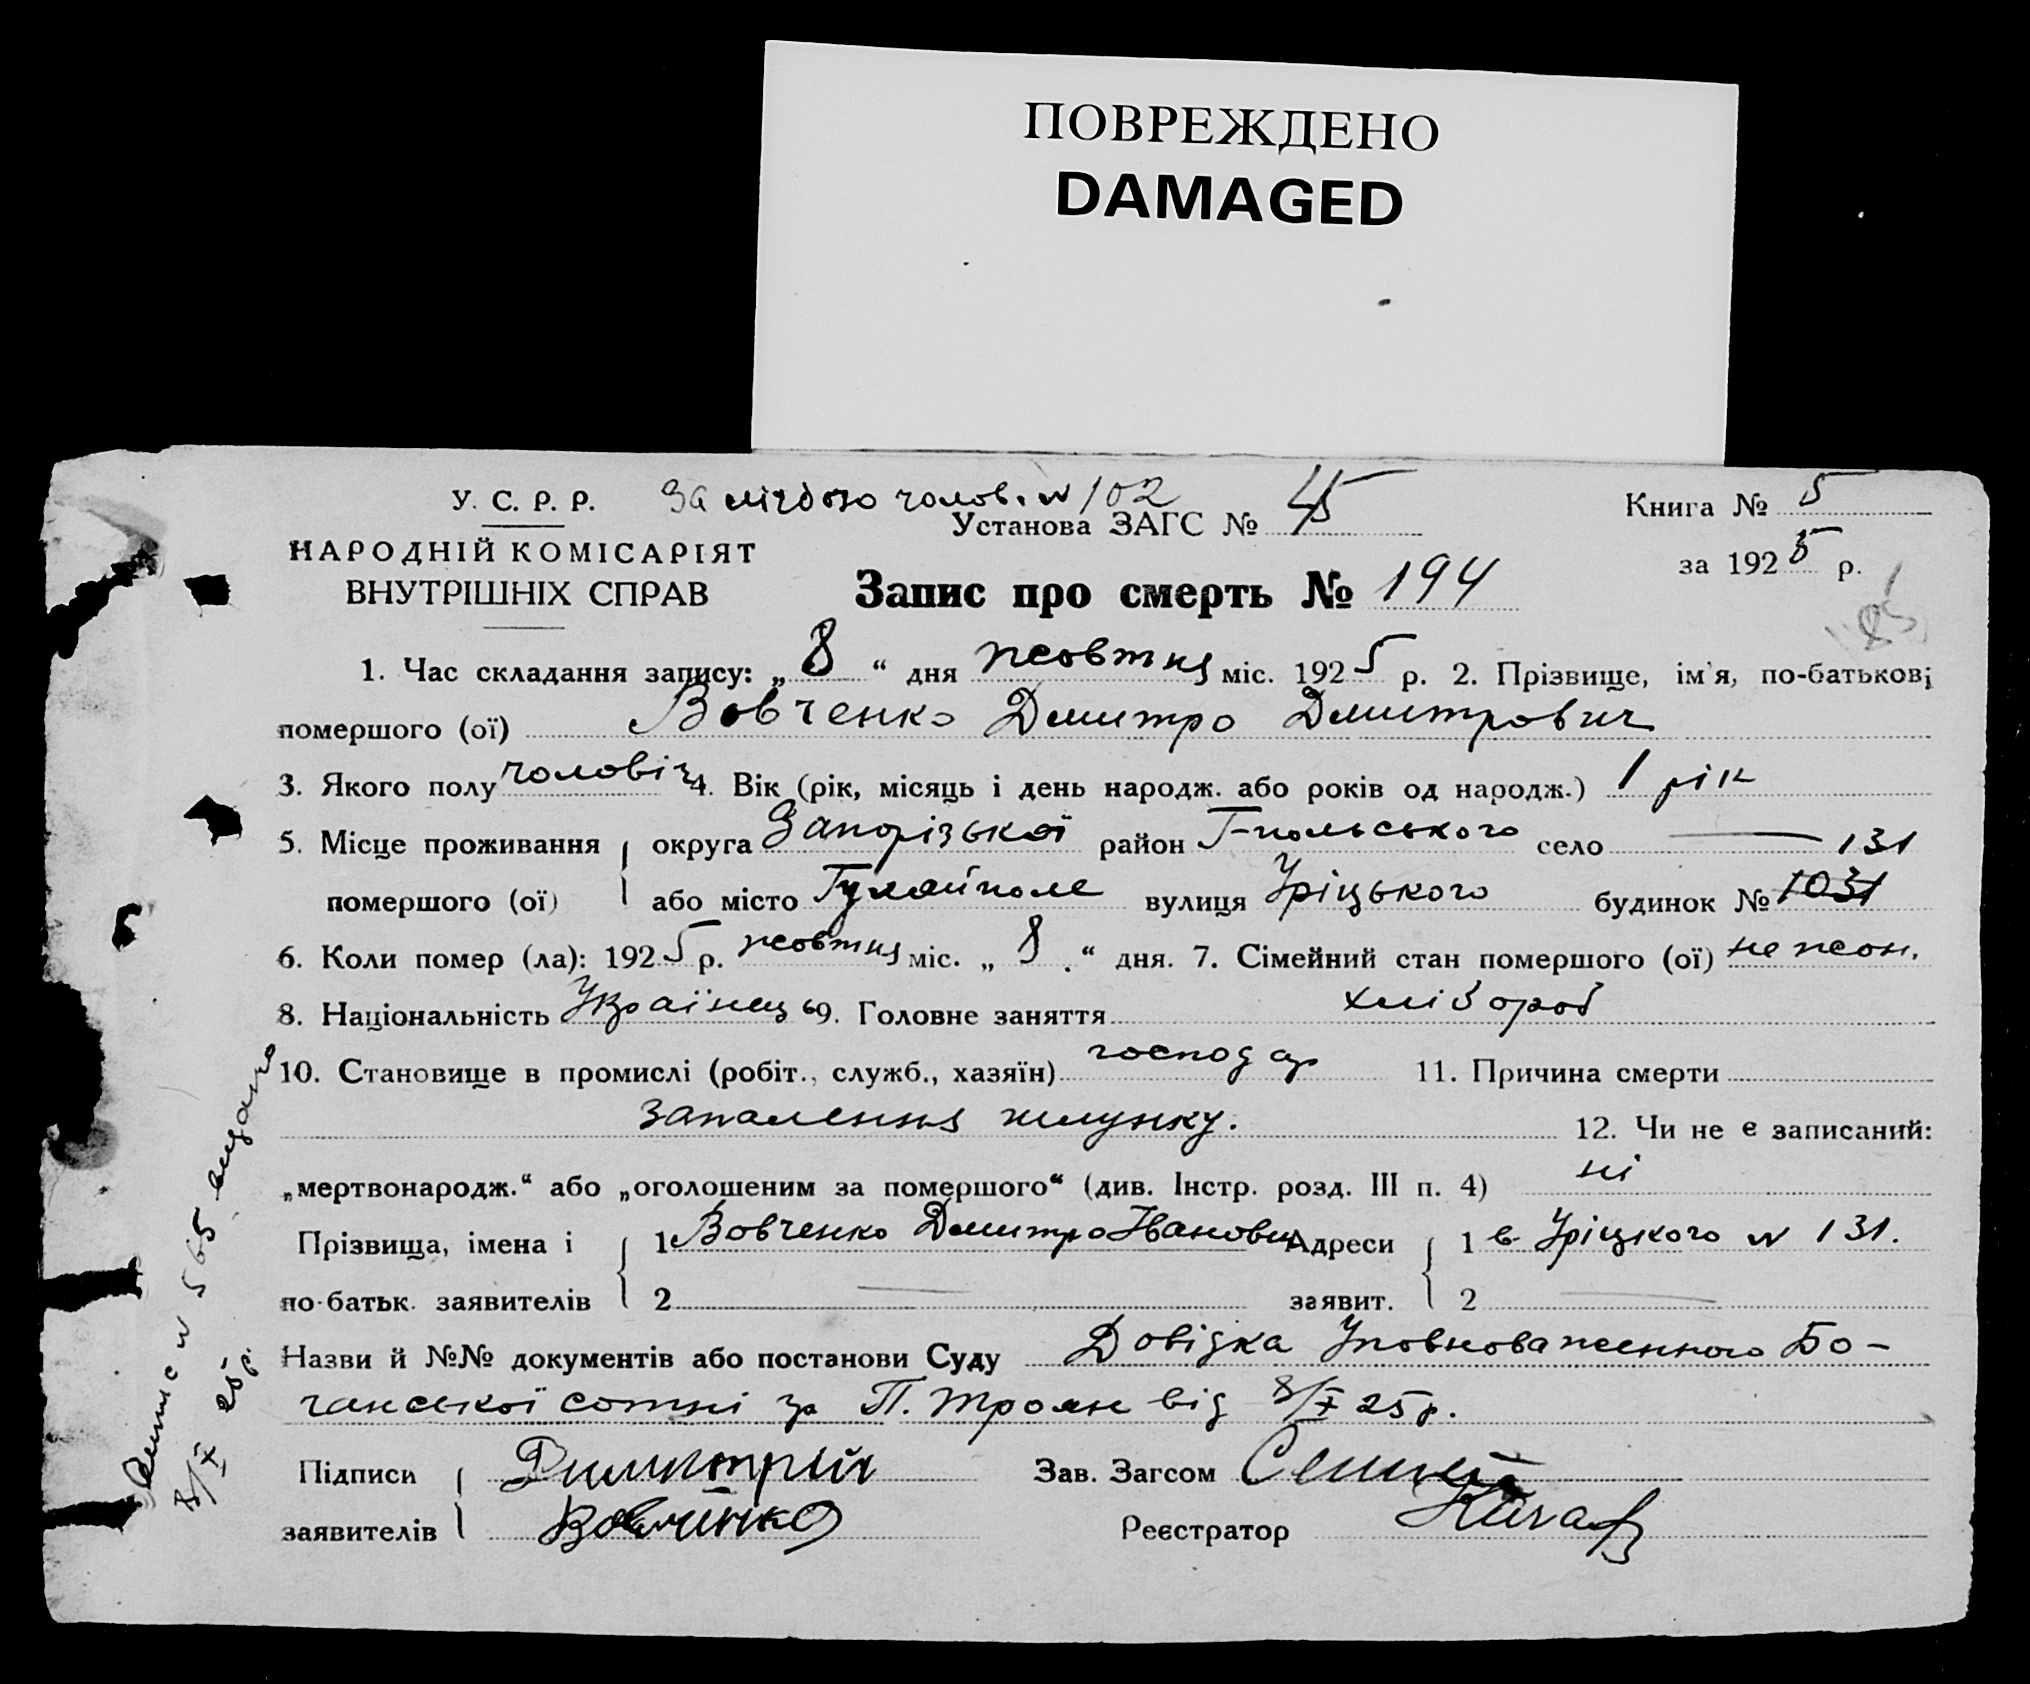 ПОВРЕЖДЕНО
DAMAGED
У. С. Р. Р.
За лічбою чолов. № 102
Установа ЗАГС № 45
Книга № 5
НАРОДНІЙ КОМІСАРІЯТ
ВНУТРІШНІХ СПРАВ
за 1925 р.
Запис про смерть № 194
1. Час складання запису: „8“ дня жовтня міс. 1925 р. 2. Прізвище, ім'я, по-батькові
помершого (ої) Вовченко Дмитро Дмитрович
3. Якого полу чоловіч 4. Вік (рік, місяць і день народж. або років од народж.) 1 рік
5. Місце проживання округа Запорізької район Г-польського село — 131
помершого (ої) або місто Гуляйполе вулиця Уріцького будинок № 1031
6. Коли помер (ла): 1925 р. жовтня міс. „8“ дня. 7. Сімейний стан помершого (ої) не жон.
8. Національність Українець 9. Головне заняття хлібороб
10. Становище в промислі (робіт., служб., хазяїн) господар 11. Причина смерти
запалення шлунку. 12. Чи не є записаний:
„мертвонародж.“ або „оголошеним за помершого“ (див. Інстр. розд. III п. 4) ні
Прізвища, імена і 1 Вовченко Дмитро Іванович Адреси 1 в. Уріцкого № 131.
по-батьк. заявителів 2 — заявит. 2 —
Назви й №№ документів або постанови Суду Довідка Уповноваженного Бо-
чанської сотні за П. Троян від 8/X 25 р.
Підписи Димитрий Зав. Загсом
заявителів Вовченко Реєстратор
№ 565 видано
8/X 25 р.